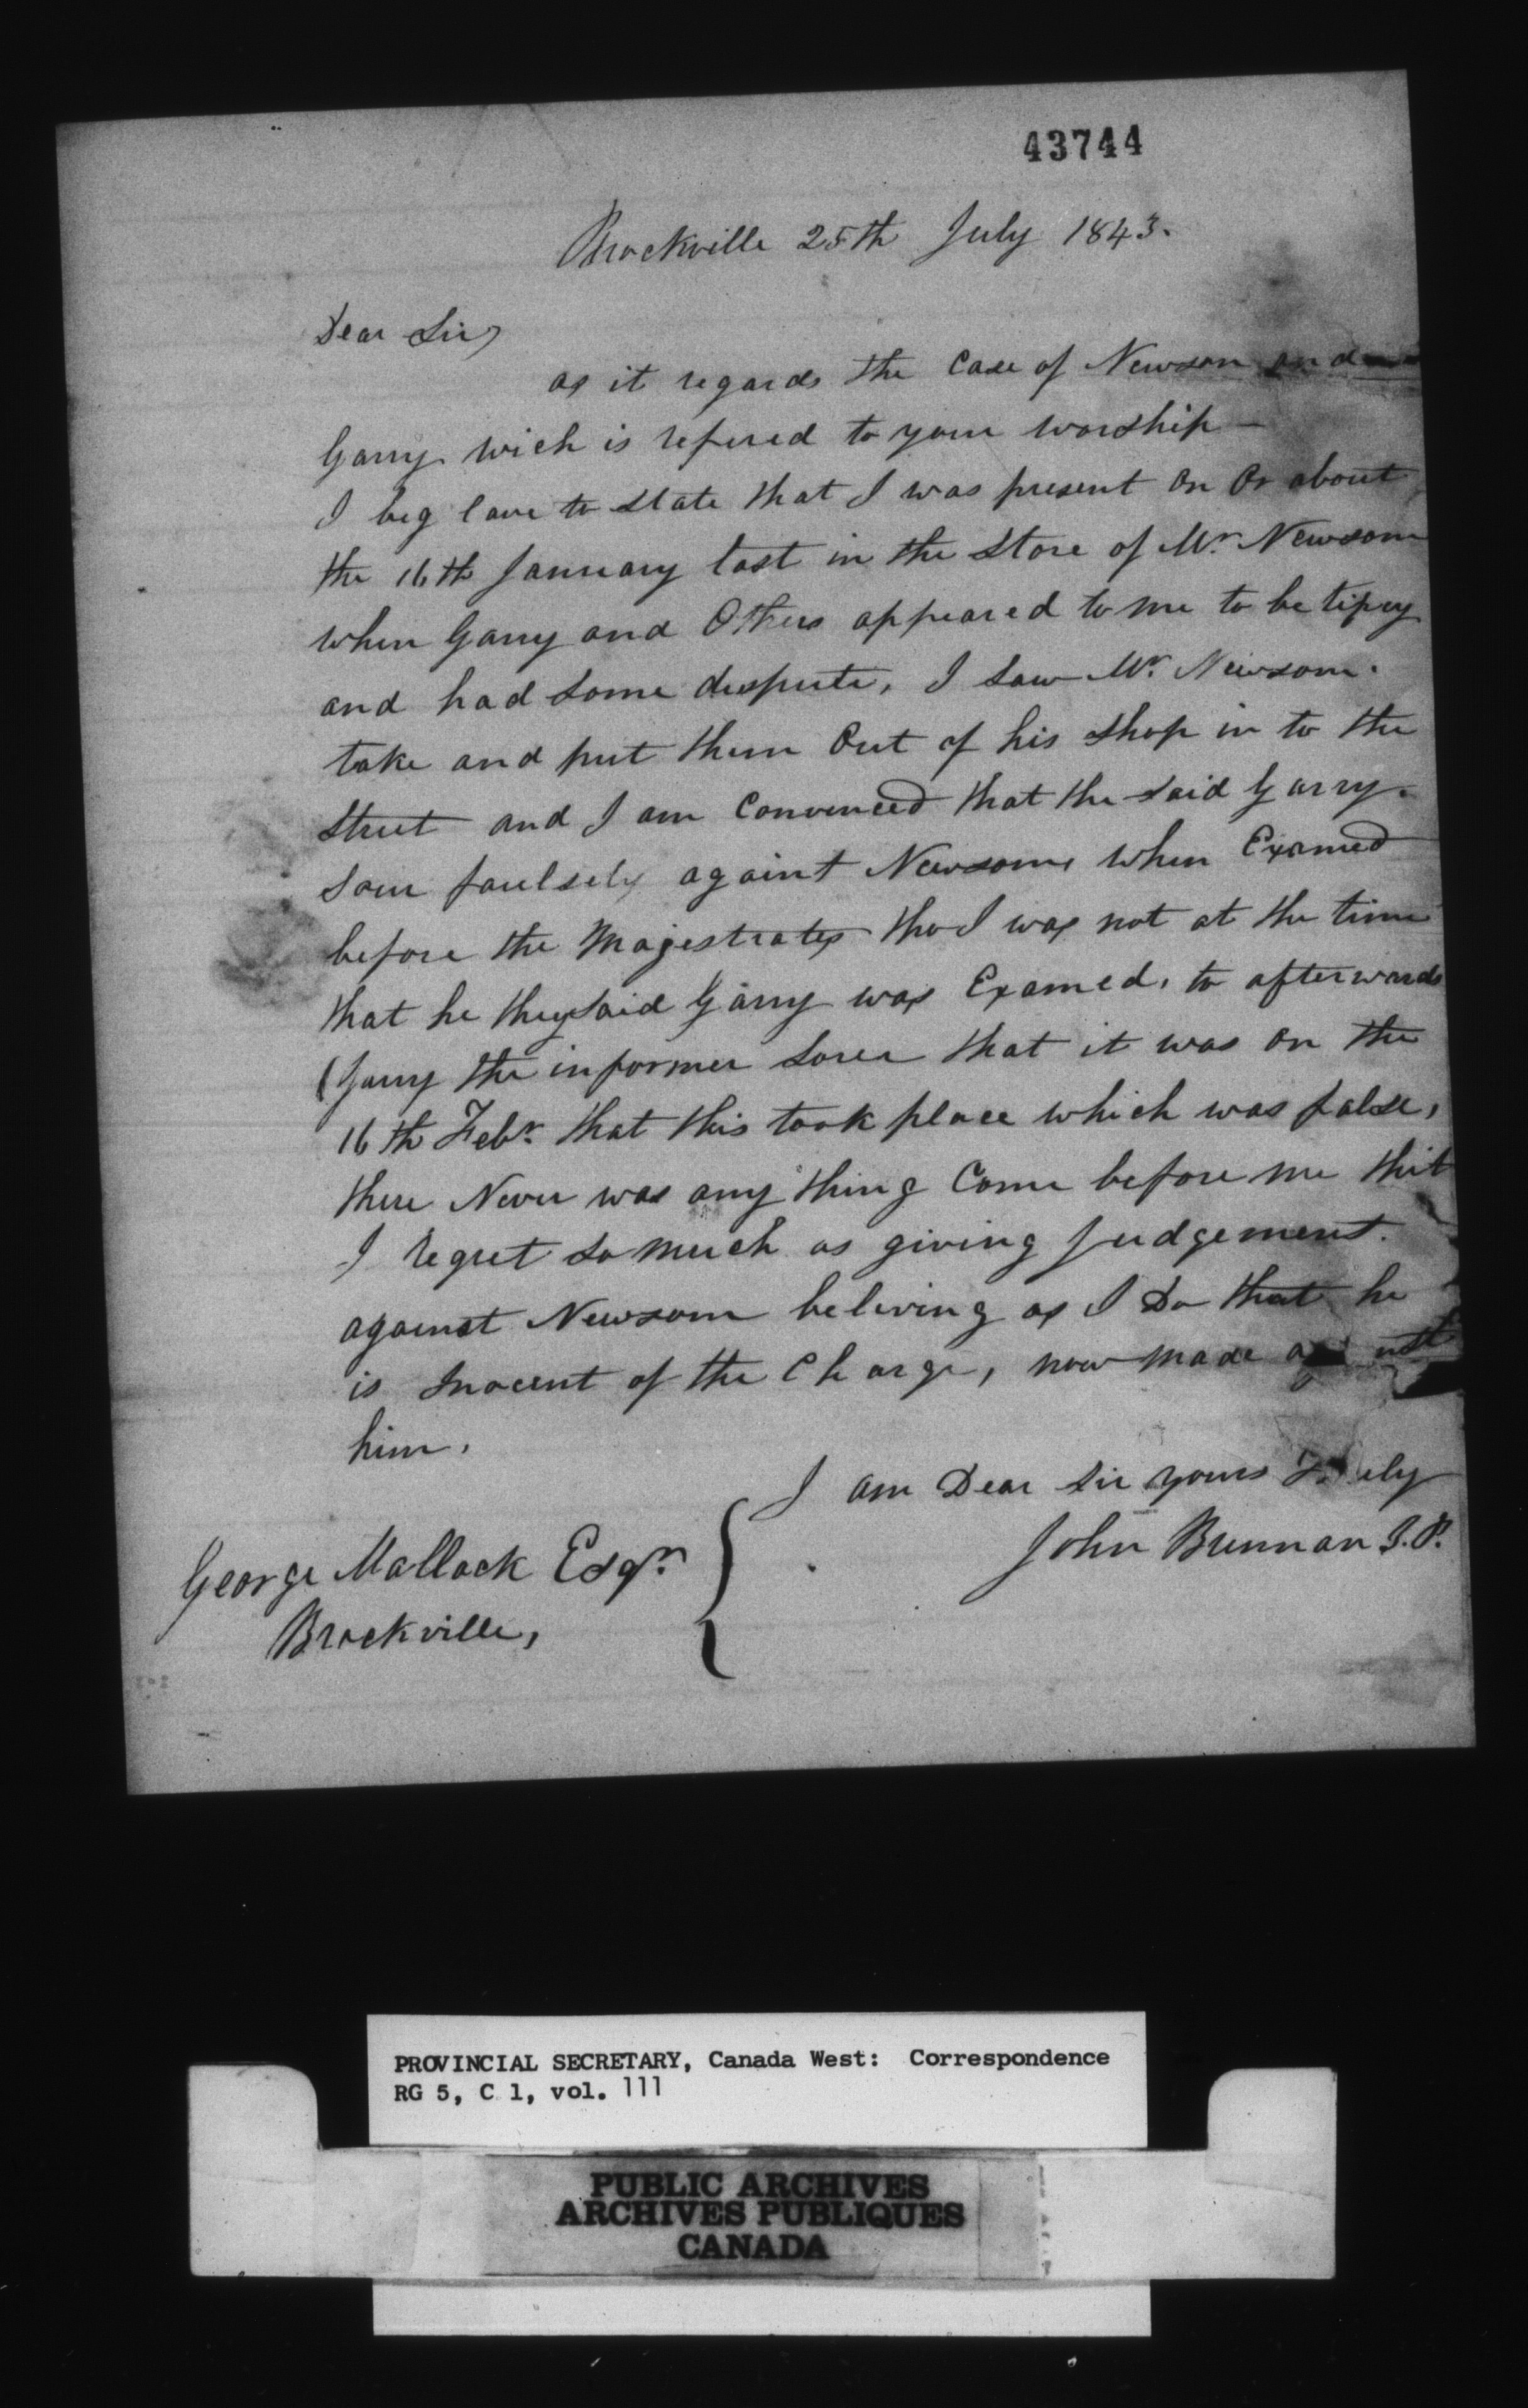 43744
Brockville 25th July 1843.
Dear Sir,
as it regards the Case of Newsom and
Garry wich is refered to your worship —
I beg lave to state that I was present on Or about
the 16th January last in the Store of Mr. Newsom
when Garry and Others appeared to me to be tipsy
and had some despute, I saw Mr. Newsom.
take and put them Out of his shop in to the
Street and I am Convenced that the said Garry.
soen faulsely againt Newsom, when Examed
before the Majestrates tho I was not at the time
that he the said Garry was Examed, to afterwards
Garry the informer sores that it was on the
16th Febr. that this took place which was false,
there Never was any thing Come before me that
I regret so much as giving Judgement.
against Newsom beliving as I Do that he
is Inocent of the Charge, now made
him.
I am Dear Sir yours Truly
John Brennan J.P.
George Mallock Esqr.
Brockville,
PROVINCIAL SECRETARY, Canada West: Correspondence
RG 5, C 1, vol. 111
PUBLIC ARCHIVES
ARCHIVES PUBLIQUES
CANADA